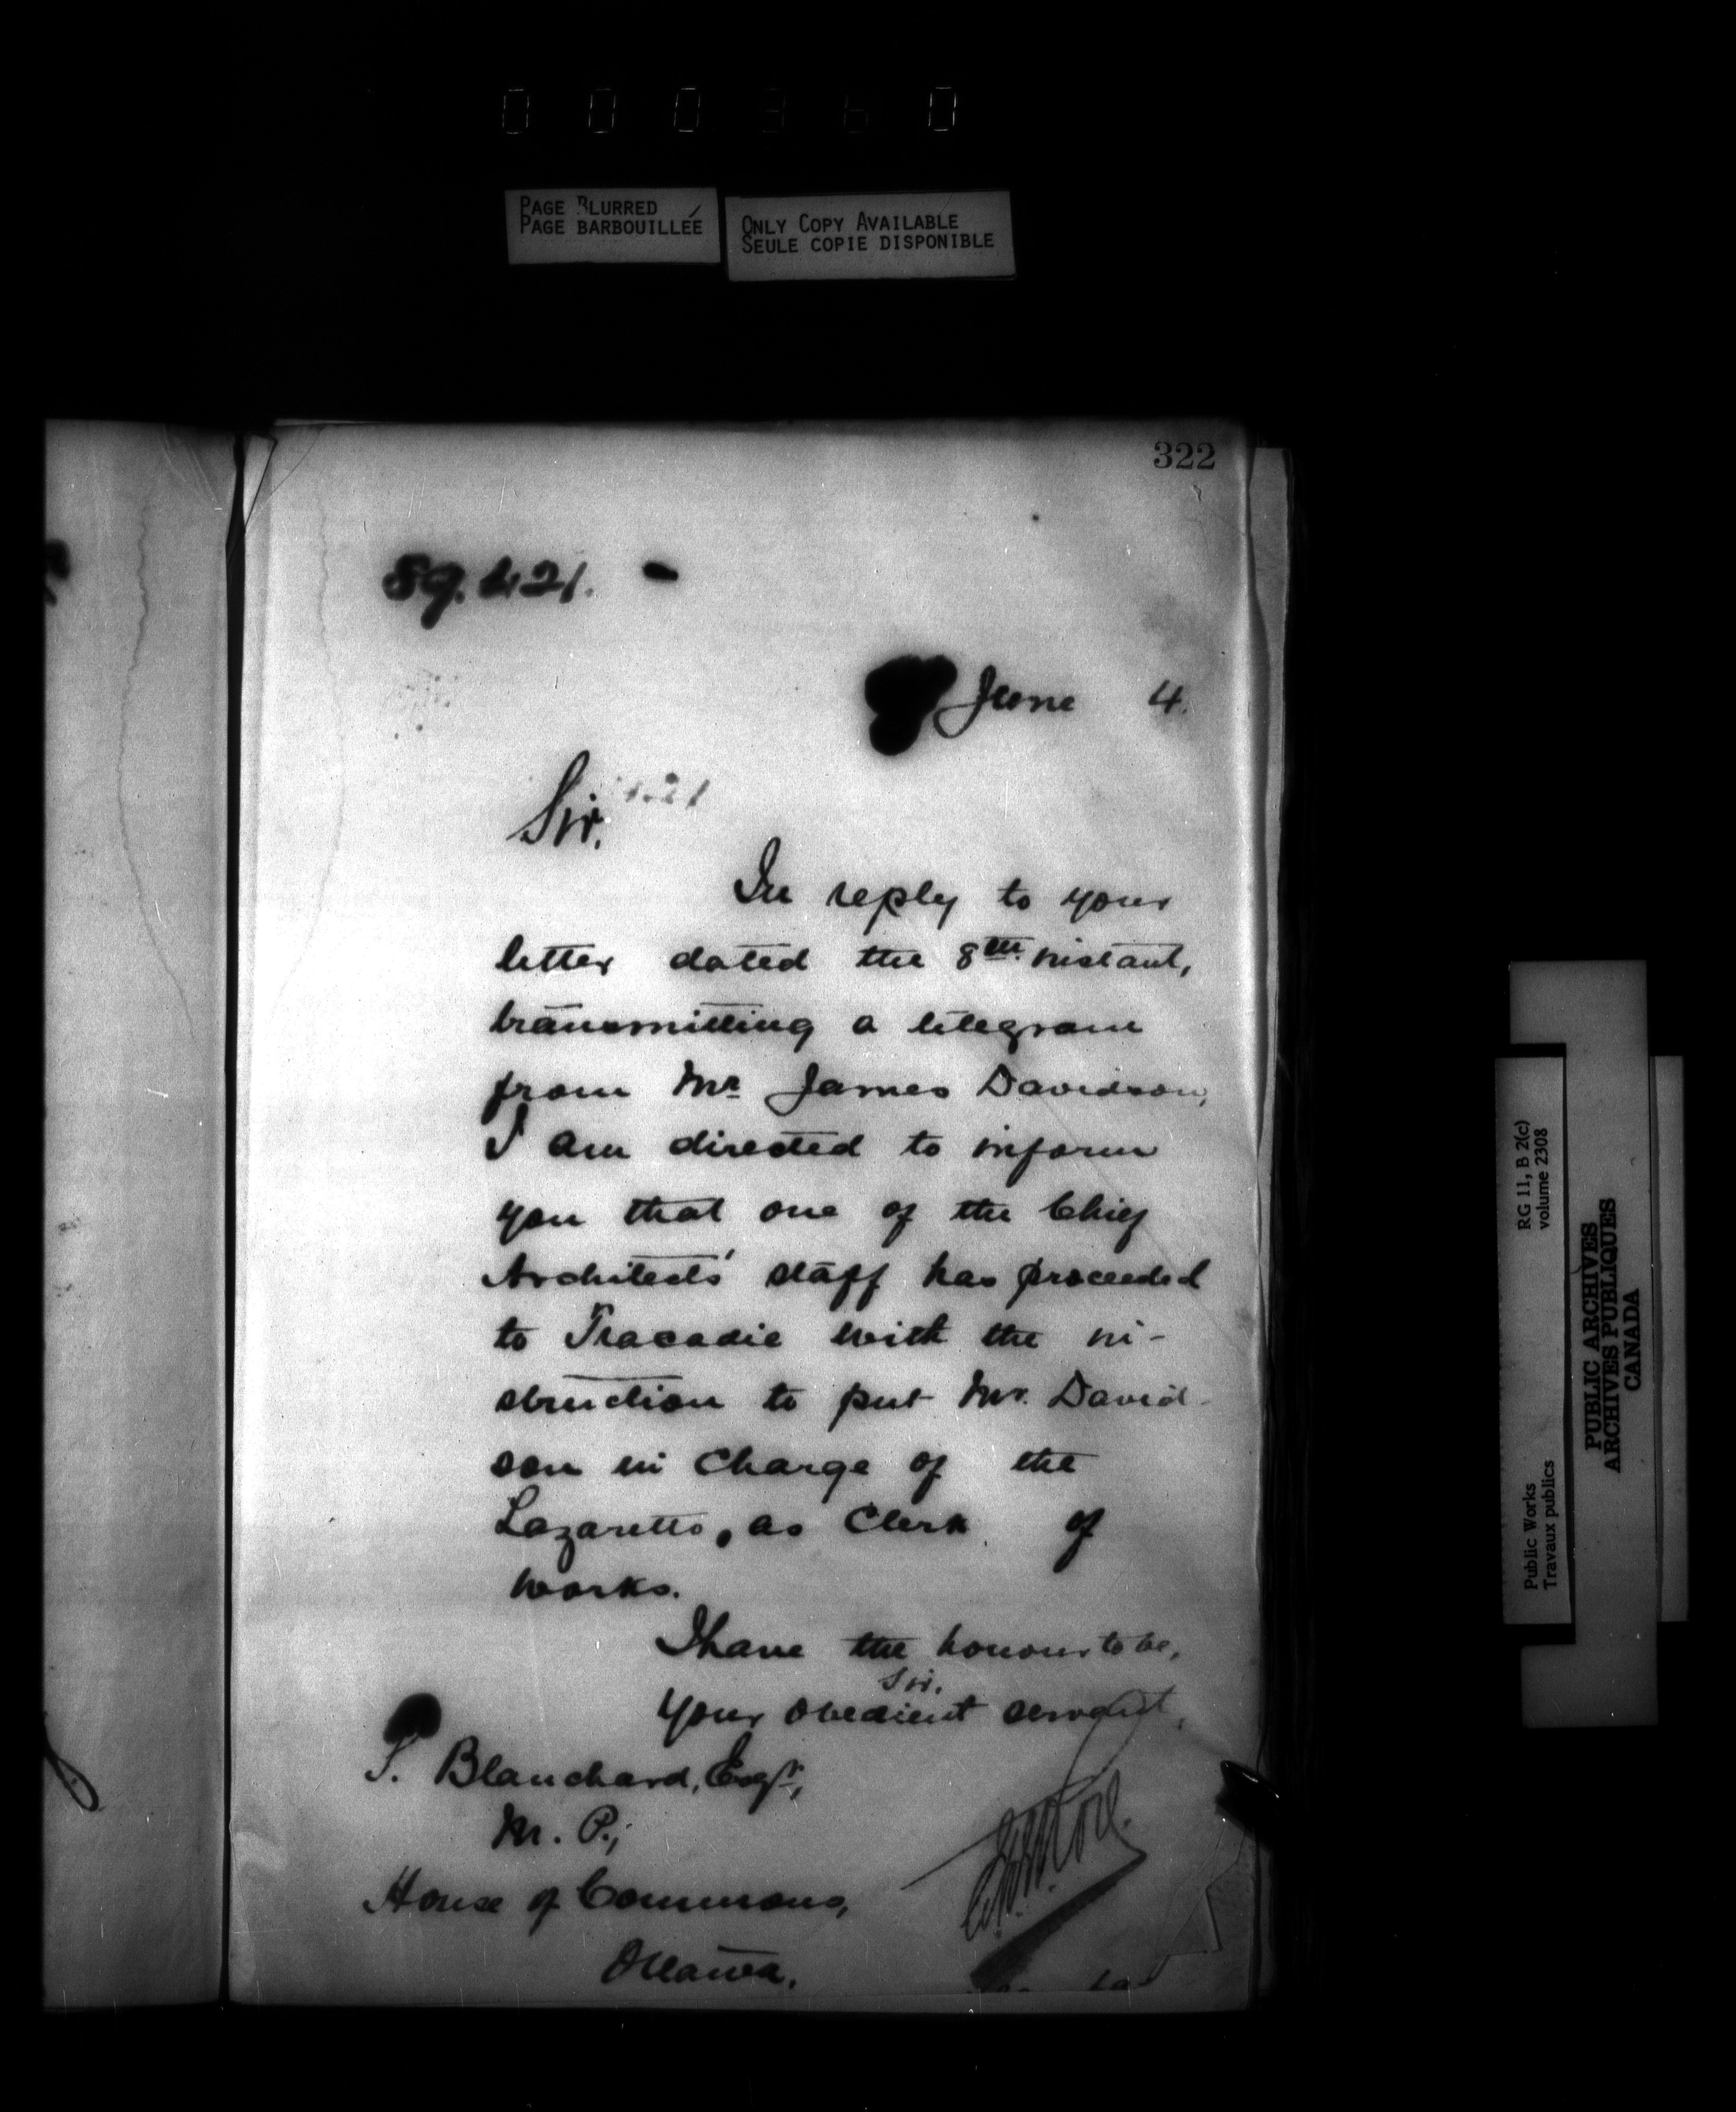 0 0 0 3 6 0
PAGE BLURRED
PAGE BARBOUILLÉE
ONLY COPY AVAILABLE
SEULE COPIE DISPONIBLE
322
59.421.
June 4.
Sir,
In reply to your
letter dated the 8th. instant,
transmitting a telegram
from Mr James Davidson,
I am directed to inform
you that one of the Chief
Architects' staff has proceeded
to Tracadie with the in-
struction to put Mr. David-
son in charge of the
Lazaretto, as Clerk of
works.
I have the honour to be,
Sir,
Your obedient servant,
T. Blanchard, Esqr.,
M. P.,
House of Commons,
Ottawa.
RG 11, B 2(c)
volume 2308
Public Works
Travaux publics
PUBLIC ARCHIVES
ARCHIVES PUBLIQUES
CANADA